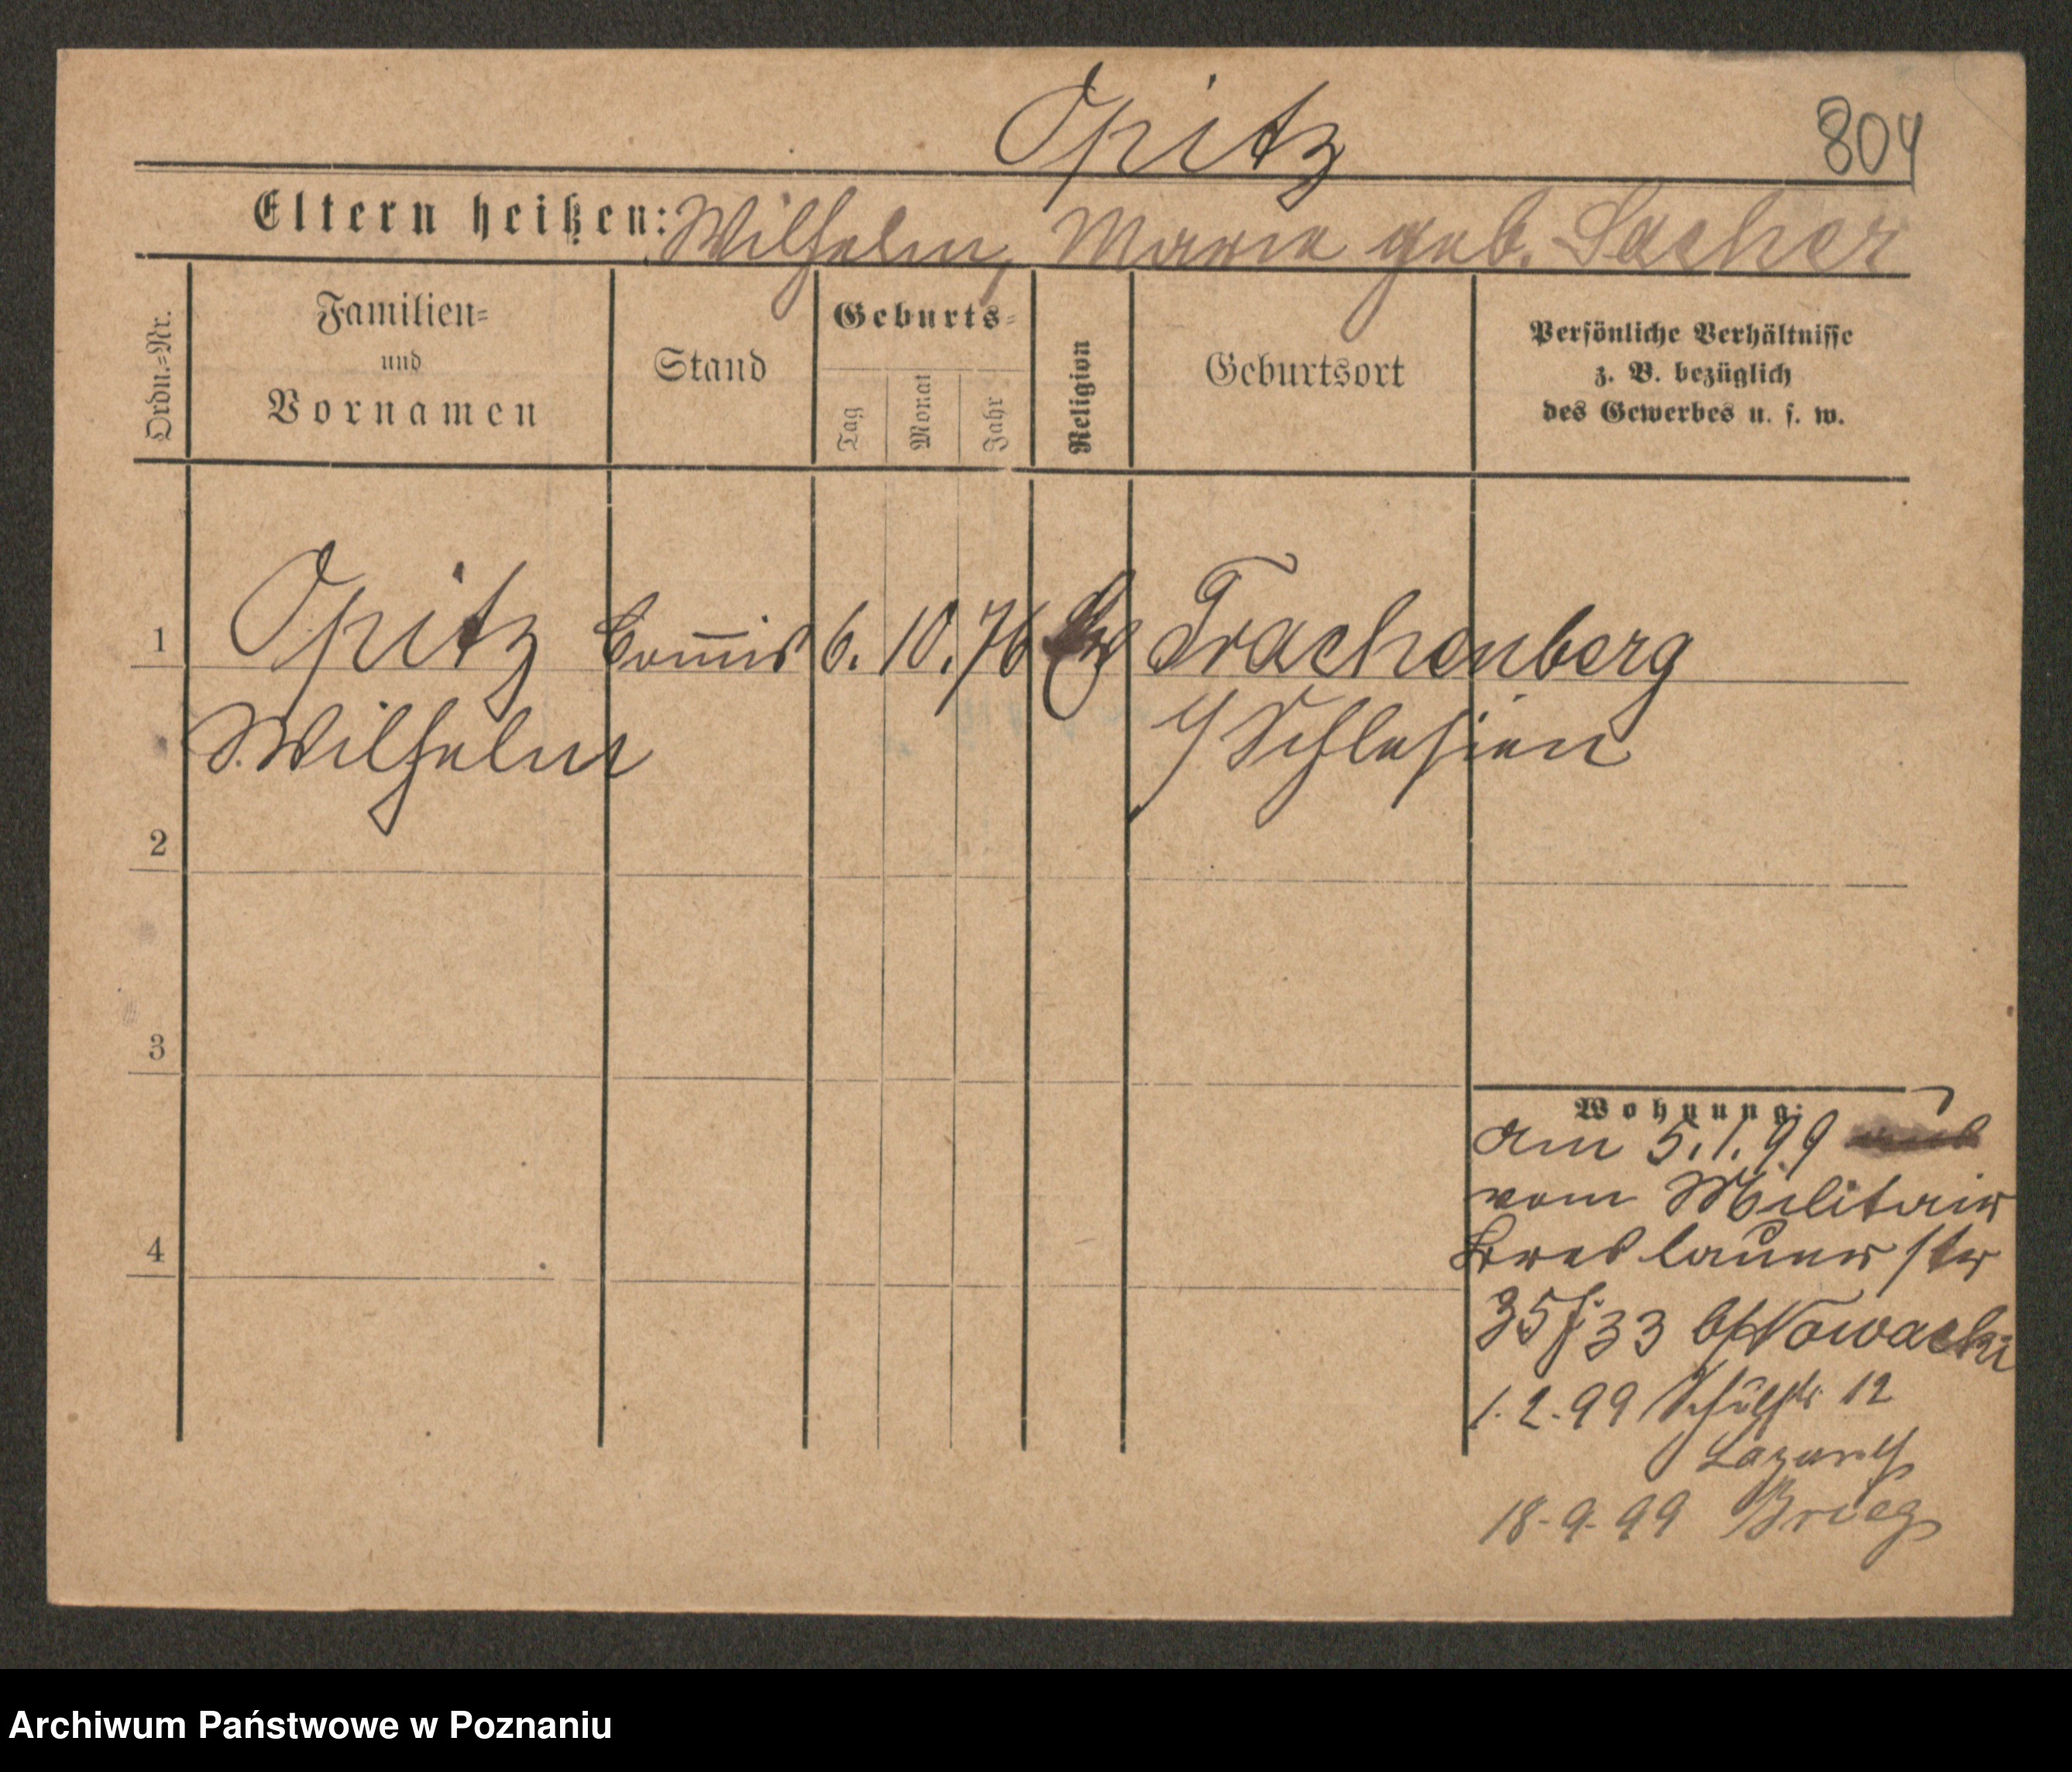 Opitz 804
Eltern heißen: Wilhelm, Marie geb. Sacher
Ordn.=Nr.
Familien=
und
Vornamen
Stand
Geburts=
Tag
Monat
Jahr
Religion
Geburtsort
Persönliche Verhältnisse
z. B. bezüglich
des Gewerbes u. s. w.
1 Opitz Com̅is 6. 10. 76 Trachenberg
Wilhelm i/Schlesien
2
3
4
Wohnung:
am 5.1.99
vom Militair
Breslauerstr
35 f. 33 b/Nowacki
1.2.99 Schulstr 12
18-9-99 Brieg
Archiwum Państwowe w Poznaniu